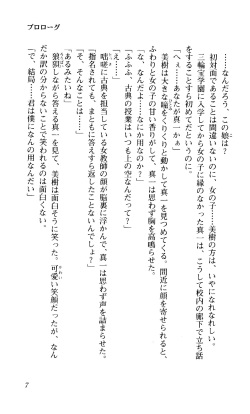 プロローグ
……なんだろう、この娘は？
初対面であることは間違いないのに、女の子……美樹の方は、いやになれなれしい。
三輪宝学園に入学してから女の子に縁のなかった真一は、こうして校内の廊下で立ち話
をすることすら初めてだというのに。
「へぇ……あなたが真一かぁ」
美樹は大きな瞳をくりくりと動かして真一を見つめてくる。間近に顔を寄せられると、
ふわりと女の子の甘い香りがして、真一は思わず胸を高鳴らせた。
「な、なんだよ……なにか用なのか？」
「ふふふ、古典の授業はいつも上の空なんだって？」
「え……」
咄嗟に古典を担当している女教師の顔が脳裏に浮かんで、真一は思わず声を詰まらせた。
「指名されても、まともに答えすら返したことないんでしょ？」
「そ、そんなことは……」
「あるみたいね」
狼狽しながら答える真一を見て、美樹は面白そうに笑った。可愛い笑顔だったが、なん
だか訳の分からないことで笑われるのは面白くない。
「で、結局……君は僕になんの用なんだい」
7